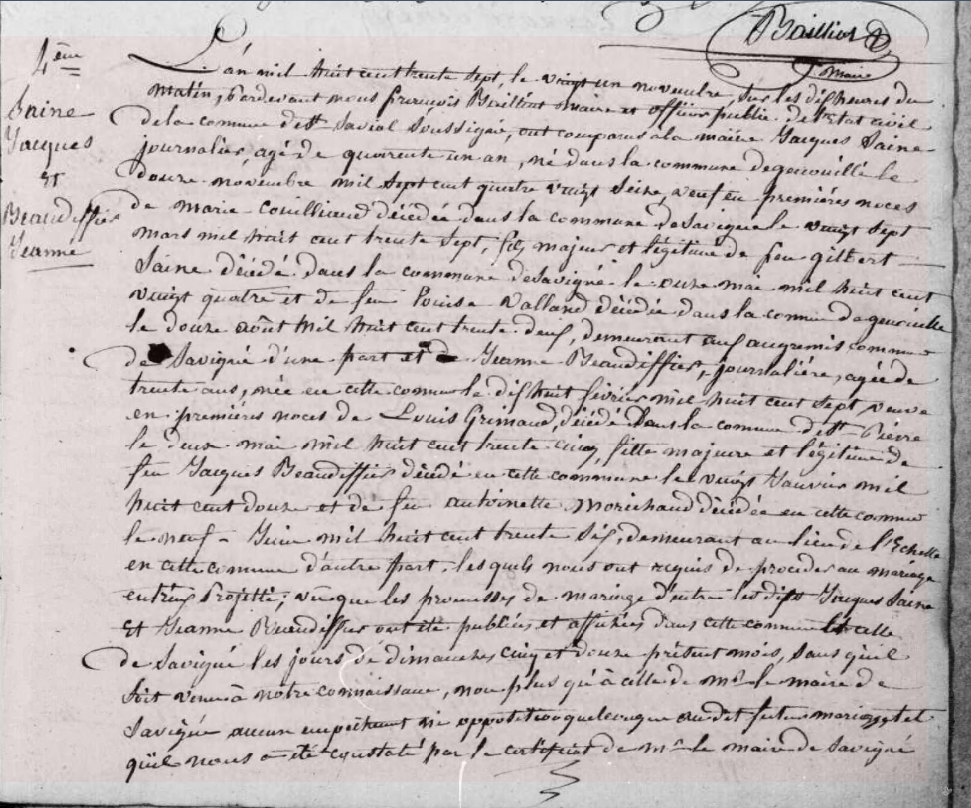 Bailliot
Maire
4ème
Saine
Jacques
et
Beaudiffier
Jeanne
L'an mil huit cent trente sept, le vingt un novembre, sur les dix heures du
matin, pardevant nous françois Bailliot maire et officier public de l'Etat civil
de la commune de St Saviol soussigné, ont comparus à la mairie Jacques Saine
journalier, agé de quarente un an, né dans la commune de genouillé le
douze novembre mil sept cent quatre vingt seize, veuf en premières noces
de marie Couillaud décédée dans la commune de Savigné le vingt sept
mars mil huit cent trente sept, fils majeur et légitime de feu gilbert
Saine décédé dans la commune de Savigné le onze mai mil huit cent
vingt quatre et de feu Louise Valland décédée dans la comune de genouillé
le douze août mil huit cent trente deux, demeurant aux commune
de Savigné d'une part et de Jeanne Beaudiffier, journalière, agée de
trente ans, née en cette commune le dix huit février mil huit cent sept veuve
en premières noces de Louis Grimaud, décédé dans la commune de St Pierre
le deux mai mil huit cent trente cinq, fille majeure et légitime de
feu Jacques Beaudiffier décédé en cette commune le vingt Janvier mil
huit cent douze et de feu antoinette Morichaud décédée en cette commune
le neuf Juin mil huit cent trente six, demeurant au lieu de l'Echelle
en cette commune d'autre part, lesquels nous ont requis de proceder au mariage
entreux Projetté; vu que les promesses de mariage d'entre les dits Jacques Saine
et Jeanne Beaudiffier ont été publiées et affichées dans cette commune et celle
de Savigné les jours de dimanches cinq et douze présent mois, sans qu'il
soit venu à notre connaissance, non plus qu'à celle de mr le maire de
Savigné aucun empêchement ni opposition quelconque au dit futur mariage, tel
qu'il nous a été constaté par le certificat de mr le maire de Savigné